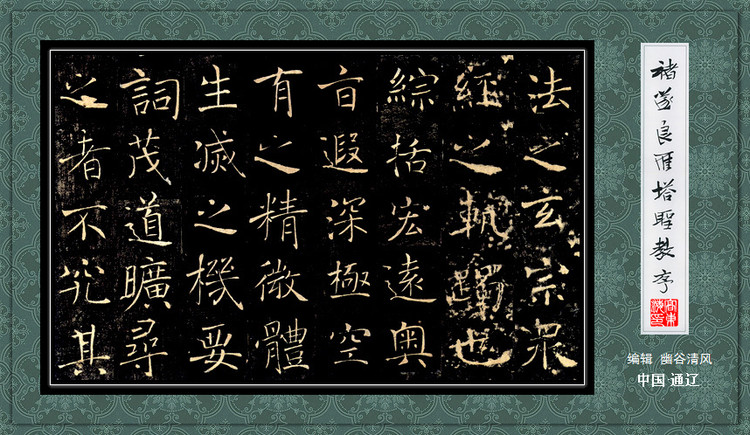 法之玄宗衆
經之軌躅也
綜括宏遠奧
旨遐深極空
有之精微體
生滅之機要
詞茂道曠尋
之者不究其
褚遂良雁塔聖教序
编辑 幽谷清风
中国·通辽